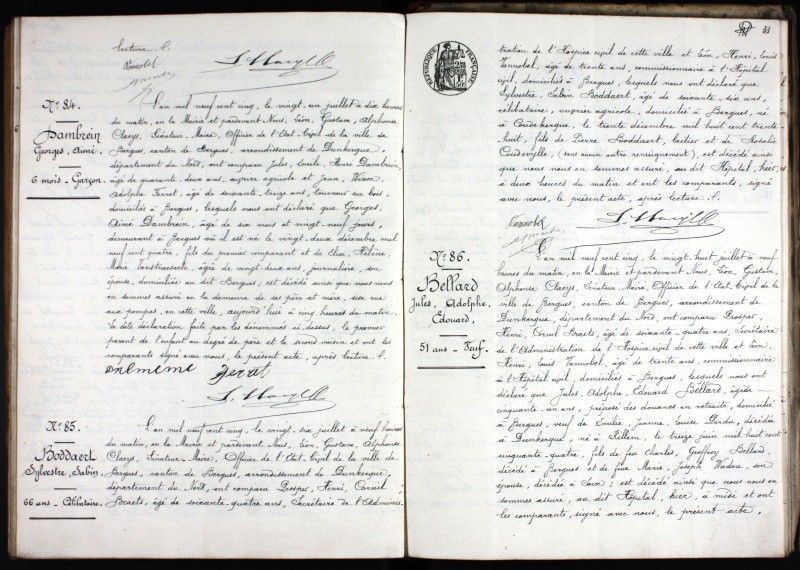 lecture./.
Vannobel
N° 84.
Dambrein
Georges, Aimé.
6 mois - Garçon.
L'an mil neuf cent cinq, le vingt-un juillet à dix heures
du matin, en la Mairie et pardevant Nous, Léon, Gustave, Alphonse
Claeys, Sénateur-Maire, Officier de l'Etat-Civil de la ville de
Bergues, canton de Bergues, arrondissement de Dunkerque,
département du Nord, ont comparu Jules, Emile, Henri Dambrein,
âgé de quarante-deux ans, ouvrier agricole et Jean,
Adolphe Ferret, âgé de soixante-treize ans, tourneur sur bois,
domiciliés à Bergues, lesquels nous ont déclaré que Georges,
Aimé Dambrein, âgé de six mois et vingt-neuf jours,
demeurant à Bergues où il est né le vingt-deux décembre mil
neuf cent quatre, fils du premier comparant et de Elise, Hélène,
Marie Vanstraesele, âgée de vingt-deux ans, journalière, son
épouse, domiciliée au dit Bergues; est décédé ainsi que nous nous
en sommes assuré en la demeure de ses père et mère, sise rue
aux pompes, en cette ville, aujourd'hui à cinq heures du matin.
La dite déclaration faite par les dénommés ci-dessus, le premier
parent de l'enfant au degré de père et le second voisin et ont les
comparants signé avec nous, le présent acte, après lecture./.
Ferret
N° 85.
Boddaert
Sylvestre, Sabin
66 ans - Célibataire.
L'an mil neuf cent cinq, le vingt-six juillet à neuf heures
du matin, en la Mairie et pardevant Nous, Léon, Gustave, Alphonse
Claeys, Sénateur-Maire, Officier de l'Etat-Civil de la ville de
Bergues, canton de Bergues, arrondissement de Dunkerque,
département du Nord, ont comparu Prosper, Henri, Cornil
Braets, âgé de soixante-quatre ans, Secrétaire de l'Adminis-
RÉPUBLIQUE FRANÇAISE
tration de l'Hospice civil de cette ville et Léon, Henri, Louis
Vannobel, âgé de trente ans, commissionnaire à l'Hôpital
civil, domiciliés à Bergues, lesquels nous ont déclaré que
Sylvestre, Sabin Boddaert, âgé de soixante-six ans,
célibataire, ouvrier agricole, domicilié à Bergues, né
à Coudekerque, le trente décembre mil huit cent trente-
huit, fils de Pierre Boddaert, laitier et de Rosalie
Coudeville, (sans aucun autre renseignement), est décédé ainsi
que nous nous en sommes assuré, au dit Hôpital, hier,
à deux heures du matin et ont les comparants, signé
avec nous, le présent acte, après lecture./.
Vannobel
N° 86.
Bellard
Jules, Adolphe,
Edouard,
51 ans - Veuf.
L'an mil neuf cent cinq, le vingt-huit juillet à neuf
heures du matin, en la Mairie et pardevant Nous, Léon, Gustave,
Alphonse Claeys, Sénateur-Maire, Officier de l'Etat-Civil de la
ville de Bergues, canton de Bergues, arrondissement de
Dunkerque, département du Nord, ont comparu Prosper,
Henri, Cornil Braets, âgé de soixante-quatre ans, Secrétaire
de l'Administration de l'Hospice civil de cette ville et Léon,
Henri, Louis Vannobel, âgé de trente ans, commissionnaire
à l'Hôpital civil, domiciliés à Bergues, lesquels nous ont
déclaré que Jules, Adolphe, Edouard Bellard, âgé de
cinquante-un ans, préposé des douanes en retraite, domicilié
à Bergues, veuf de Emilie, Jeanne, Louise Gardin, décédée
à Dunkerque, né à Killem, le treize juin mil huit cent
cinquante-quatre, fils de feu Charles, Geoffroy Bellard,
décédé à Bergues et de feue Marie, Joseph, son
épouse, décédée à; est décédé ainsi que nous nous en
sommes assuré, au dit Hôpital, hier, à midi et ont
les comparants, signé avec nous, le présent acte,